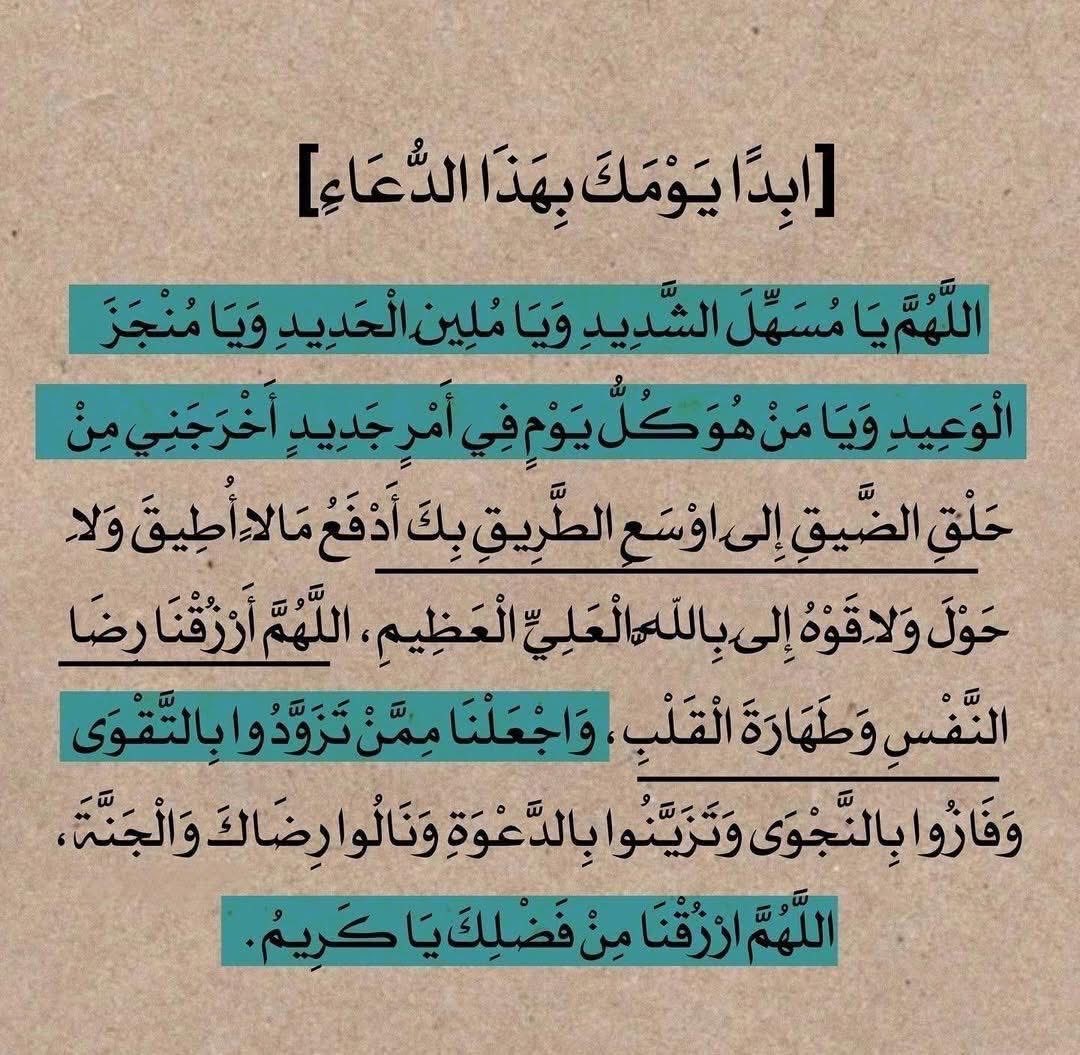 [ابِدًا يَوْمَكَ بِهَذَا الدُّعَاءِ]
اللَّهُمَّ يَا مُسَهِّلَ الشَّدِيدِ وَيَا مُلِينِ الْحَدِيدِ وَيَا مُنْجَزَ
الْوَعِيدِ وَيَا مَنْ هُوَ كُلُّ يَوْمٍ فِي أَمْرٍ جَدِيدٍ أَخْرَجَنِي مِنْ
حَلْقِ الضَّيقِ إِلى اوْسَعِ الطَّرِيقِ بِكَ أَدْفَعُ مَالاً أُطِيقَ وَلاِ
حَوْلَ وَلاِ قَوْهُ إِلى بِاللَّهِ الْعَلِيِّ الْعَظِيمِ، اللَّهُمَّ أَرْزُقْنَا رِضَا
النَّفْسِ وَطَهَارَةَ الْقَلْبِ، وَاجْعَلْنَا مِمَّنْ تَزَوَّدُوا بِالتَّقْوَى
وَفَازُوا بِالنَّجْوَى وَتَزَيَّنُوا بِالدَّعْوَةِ وَنَالُوا رِضَاكَ وَالْجَنَّةَ،
اللَّهُمَّ ارْزُقْنَا مِنْ فَضْلِكَ يَا كَرِيمُ.